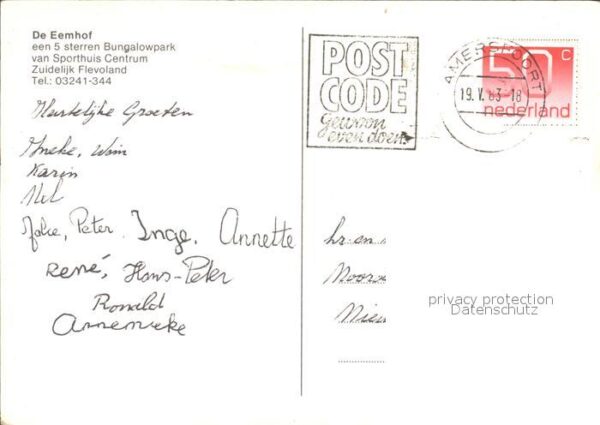 De Eemhof
een 5 sterren Bungalowpark
van Sporthuis Centrum
Zuidelijk Flevoland
Tel.: 03241-344
Hartelijke Groeten
Anneke, Wim
Karin
Peter. Inge. Annette
René, Hans-Peter
Ronald
Annemieke
POST
CODE
gewoon
even doen
AMERSFOORT
19.V.83-18
50 C
nederland
hr. en
Moor
Nieu
privacy protection
Datenschutz